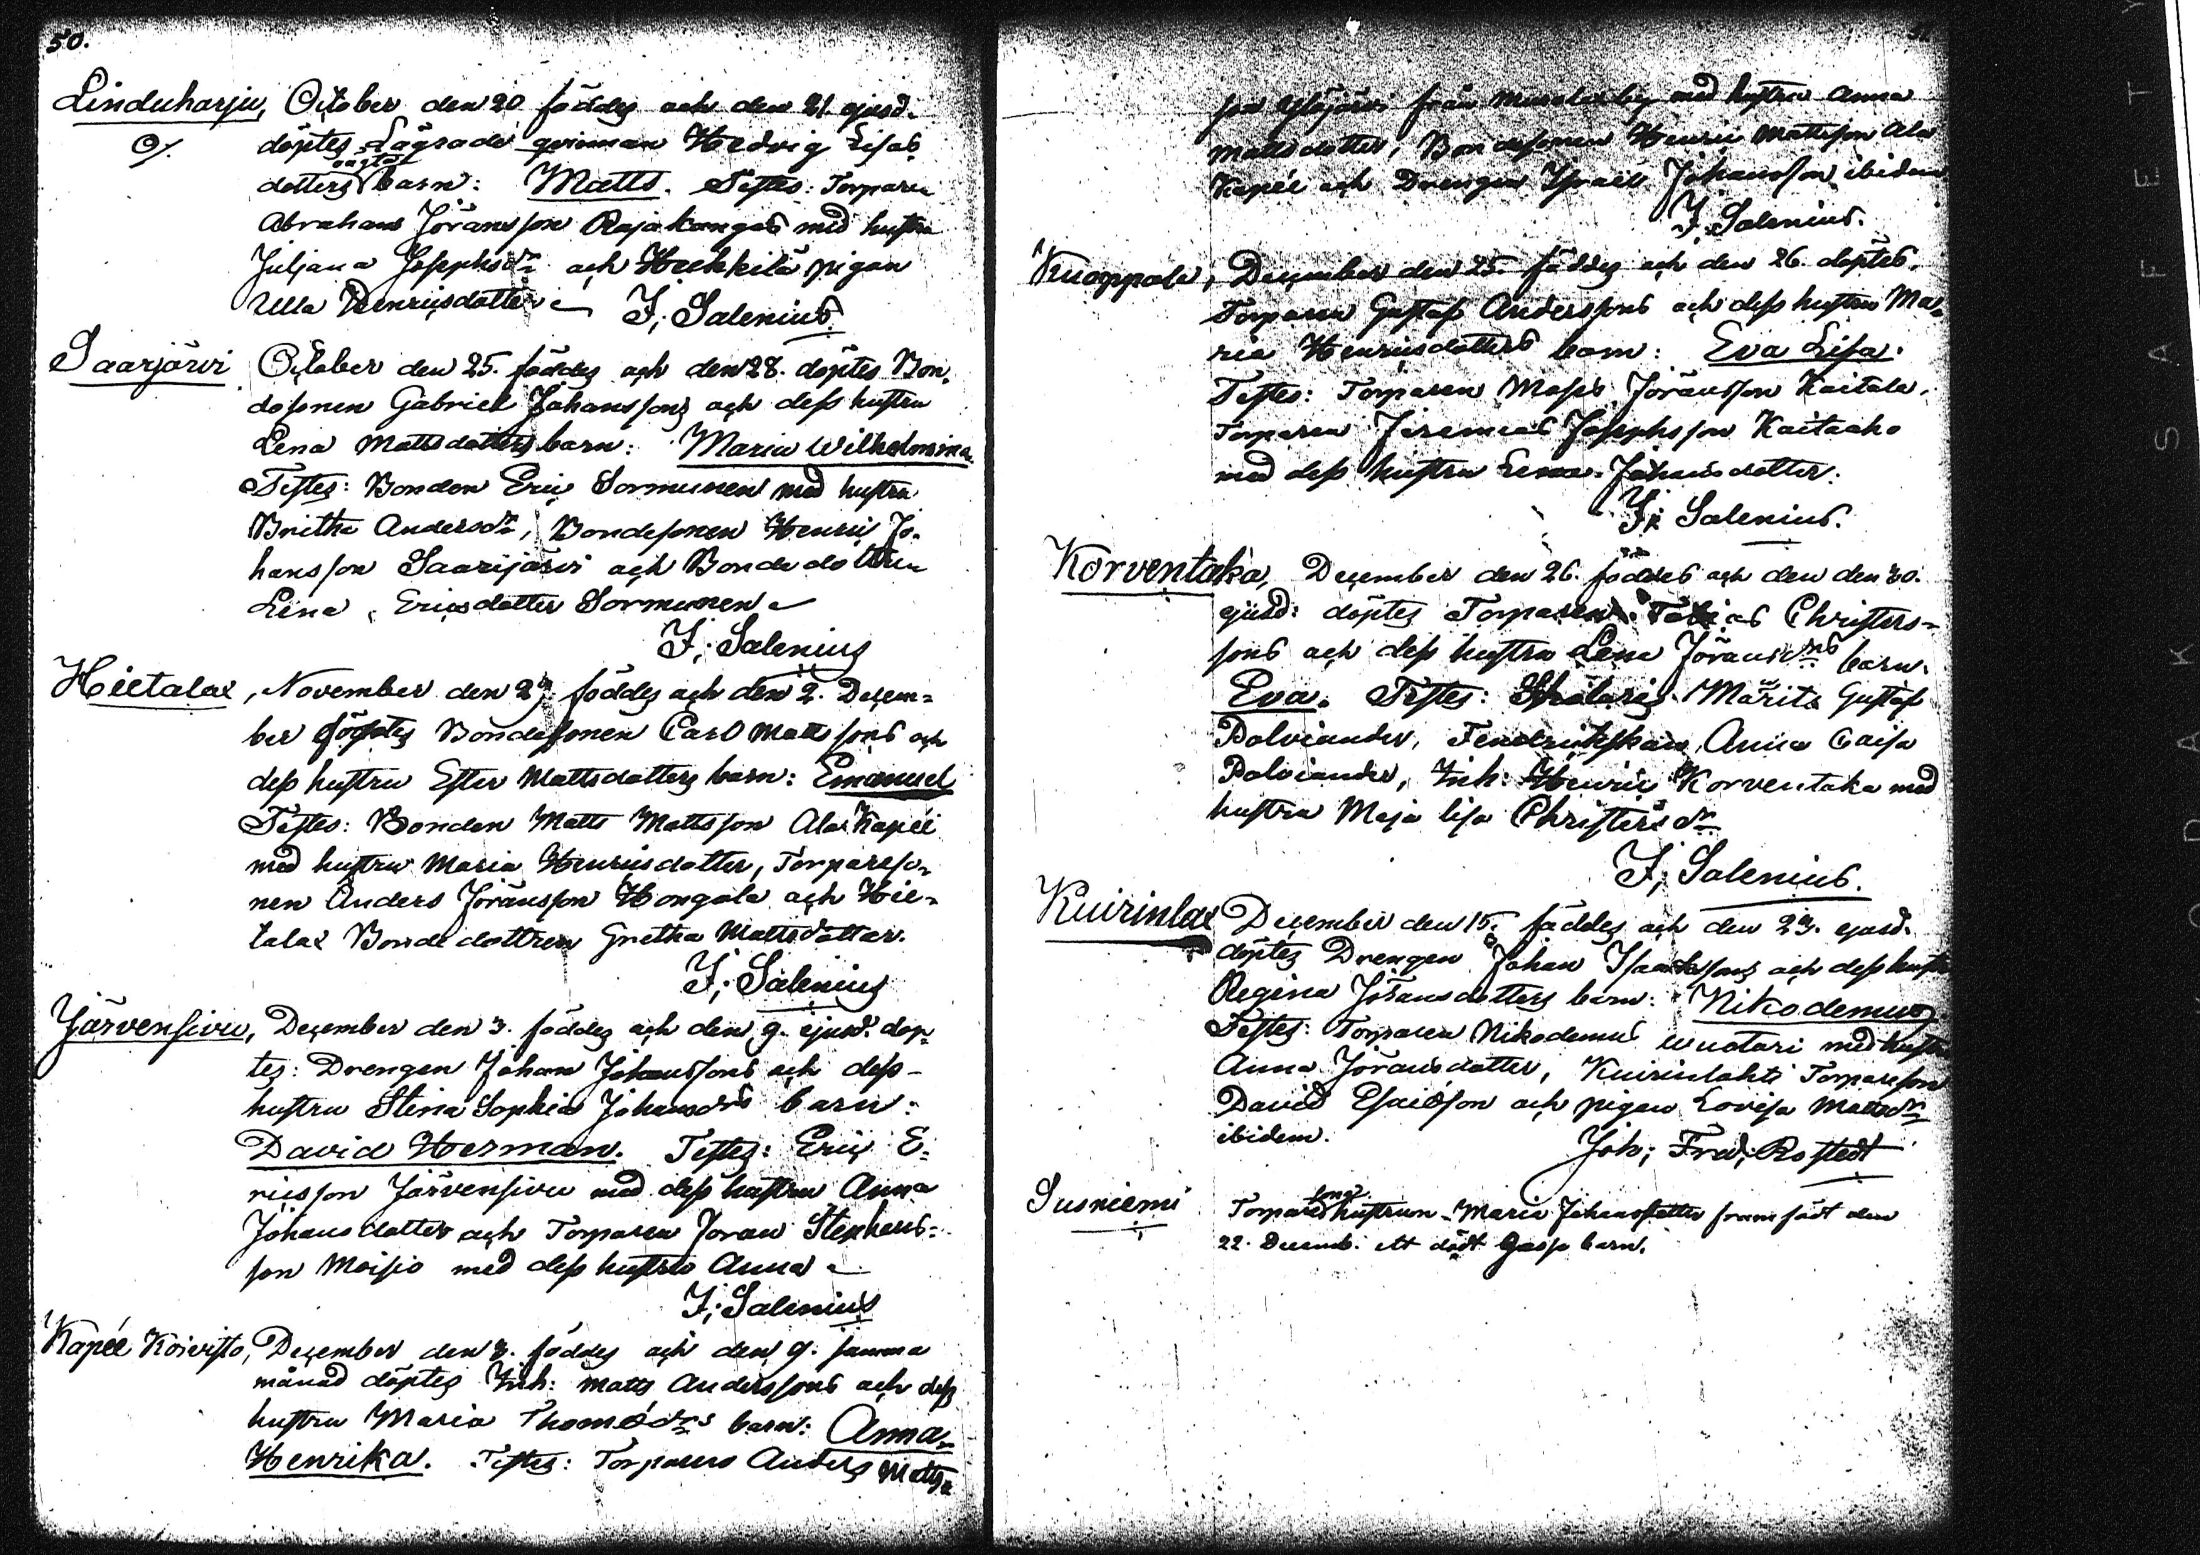 50.
Linduharju, October den 20 föddes och den 21. ejusd.
o/. döptes Lägrade qvinnan Hedvig Lisas
dotters oägta barn: Matts. Testes: Torparen
Abraham Jöransson Rajakangas med hustru
Juljana Josephsdr och Heikkilä pigan
Ulla Henricsdotter
J; Salenius
Saarjärvi October den 25. föddes och den 28. döptes Bon-
desonen Gabriel Johanssons och dess hustru
Lena Mattsdotters barn: Maria Wilhelmina.
Testes: Bonden Eric Sormunen med hustru
Britha Andersdr, Bondesonen Henric Jo-
hansson Saarijärvi och Bonde dottren
Lena Ericsdotter Sormunen
J; Salenius
Hietalax, November den 29 föddes och den 2. Decem-
ber döptes Bondesonen Carl Mattssons och
dess hustru Ester Mattsdotters barn: Emanuel
Testes: Bonden Matts Mattsson Ala Kapéé
med hustru Maria Henricsdotter, Torpareso-
nen Anders Jöransson Hongala och Hie-
talax Bonde dottren Gretha Mattsdotter.
J; Salenius
Järvensivu, December den 3. föddes och den 9. ejusd. döp-
tes: Drengen Johan Johanssons och dess
hustru Stina Sophia Johansdrs barn:
David Herman. Testes: Eric E-
ricsson Järvensivu med dess hustru Anna
Johansdotter och Torparen Joran Stephens-
son Moisio med dess hustru Anna
J; Salenius
Kapéé Koivisto, December den 3. föddes och den 9. samma
månad döptes Inh: Matts Anderssons och dess
hustru Maria Thomædrs barn: Anna
Henrika. Testes: Torparen Anders Matts-
son Ylöjärvi från med hustru Anna
Mattsdotter, Bondesonen Henric Mattsson Ala
Kapéé och Drengen Israel Johansson ibidem
J; Salenius.
Kuoppala, December den 25. föddes och den 26. döptes.
Torparen Gustaf Anderssons och dess hustru Ma-
ria Henricsdotters barn: Eva Lisa.
Testes: Torparen Moses Jöransson Kaitala,
Torparen Jeremias Josephsson Kaitaaho
med dess hustru Lena Johansdotter.
J; Salenius.
Korventaka, December den 26. föddes och den den 30.
ejusd: döptes Torparen Tobias Christers-
sons och dess hustru Lena Jöransdrs barn.
Eva. Testes: Mårits Gustaf
Polviander, Anna Caisa
Polviander, Inh: Henric Korventaka med
hustru Maja lisa Christersdr
J; Salenius.
Kuirinlax December den 15. föddes och den 23. ejusd.
döptes Drengen Johan Isaakssons och dess hustru
Regina Jöransdotters barn: Nikodemus
Testes: Torparen Nikodemus Wuotari med hustru
Anna Jöransdotter, Kuirinlahti Torpareson
David Esaiæson och pigan Lovisa Mattsdr
ibidem.
Joh; Fred; Rostedt
Susniemi Torpare sons hustrun Maria Johansdotter framfödt den
22. Decemb. ett dödt Gosse barn.
SAFETY
KODAK